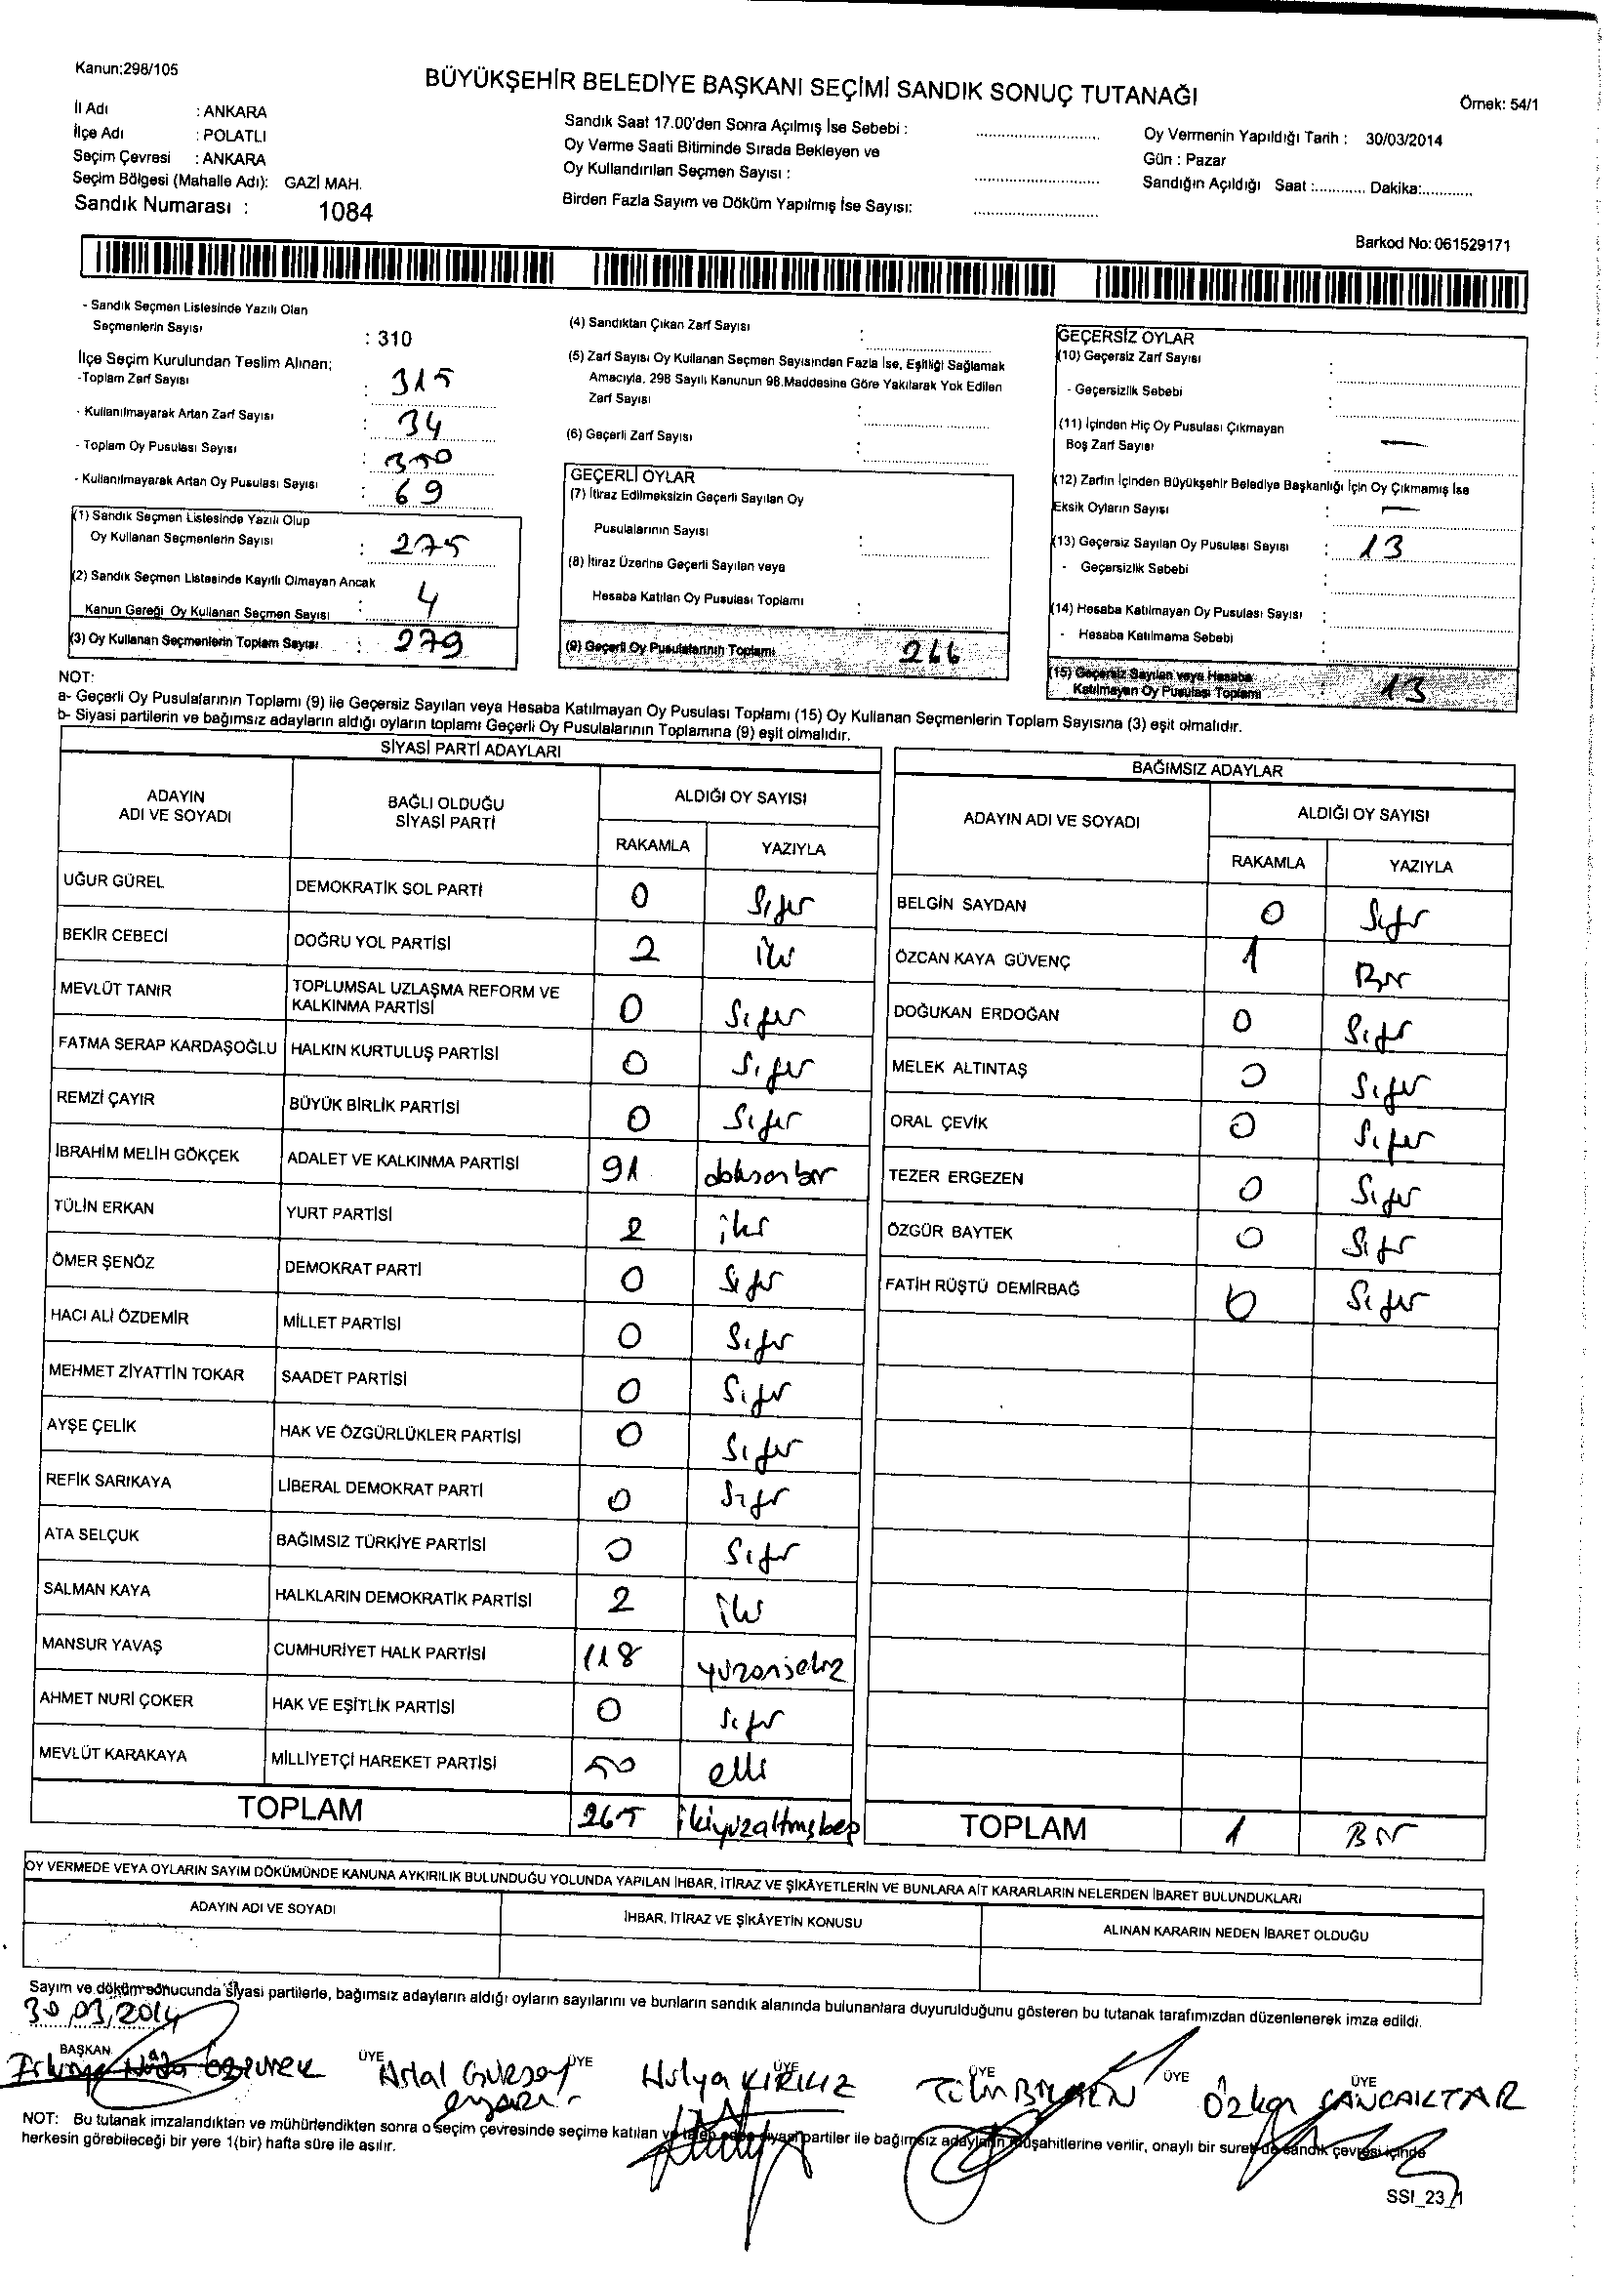 Kanun:298/105
BÜYÜKŞEHİR BELEDİYE BAŞKANI SEÇİMİ SANDIK SONUÇ TUTANAĞI
Örnek: 54/1
İl Adı : ANKARA
İlçe Adı : POLATLI
Seçim Çevresi : ANKARA
Seçim Bölgesi (Mahalle Adı): GAZİ MAH.
Sandık Numarası : 1084
Sandık Saat 17.00'den Sonra Açılmış İse Sebebi :
Oy Verme Saati Bitiminde Sırada Bekleyen ve
Oy Kullandırılan Seçmen Sayısı :
Birden Fazla Sayım ve Döküm Yapılmış İse Sayısı:
Oy Vermenin Yapıldığı Tarih : 30/03/2014
Gün : Pazar
Sandığın Açıldığı Saat :............ Dakika:............
Barkod No: 061529171
- Sandık Seçmen Listesinde Yazılı Olan
Seçmenlerin Sayısı : 310
İlçe Seçim Kurulundan Teslim Alınan;
-Toplam Zarf Sayısı : 315
- Kullanılmayarak Artan Zarf Sayısı : 34
- Toplam Oy Pusulası Sayısı : 350
- Kullanılmayarak Artan Oy Pusulası Sayısı : 69
(1) Sandık Seçmen Listesinde Yazılı Olup
Oy Kullanan Seçmenlerin Sayısı : 275
(2) Sandık Seçmen Listesinde Kayıtlı Olmayan Ancak
Kanun Gereği Oy Kullanan Seçmen Sayısı : 4
(3) Oy Kullanan Seçmenlerin Toplam Sayısı : 279
(4) Sandıktan Çıkan Zarf Sayısı :
(5) Zarf Sayısı Oy Kullanan Seçmen Sayısından Fazla İse, Eşitliği Sağlamak
Amacıyla, 298 Sayılı Kanunun 98.Maddesine Göre Yakılarak Yok Edilen
Zarf Sayısı :
(6) Geçerli Zarf Sayısı :
GEÇERLİ OYLAR
(7) İtiraz Edilmeksizin Geçerli Sayılan Oy
Pusulalarının Sayısı :
(8) İtiraz Üzerine Geçerli Sayılan veya
Hesaba Katılan Oy Pusulası Toplamı :
(9) Geçerli Oy Pusulalarının Toplamı : 266
GEÇERSİZ OYLAR
(10) Geçersiz Zarf Sayısı :
- Geçersizlik Sebebi :
(11) İçinden Hiç Oy Pusulası Çıkmayan
Boş Zarf Sayısı : —
(12) Zarfın İçinden Büyükşehir Belediye Başkanlığı İçin Oy Çıkmamış İse
Eksik Oyların Sayısı : —
(13) Geçersiz Sayılan Oy Pusulası Sayısı : 13
- Geçersizlik Sebebi :
(14) Hesaba Katılmayan Oy Pusulası Sayısı :
- Hesaba Katılmama Sebebi :
(15) Geçersiz Sayılan veya Hesaba
Katılmayan Oy Pusulası Toplamı : 13
NOT:
a- Geçerli Oy Pusulalarının Toplamı (9) ile Geçersiz Sayılan veya Hesaba Katılmayan Oy Pusulası Toplamı (15) Oy Kullanan Seçmenlerin Toplam Sayısına (3) eşit olmalıdır.
b- Siyasi partilerin ve bağımsız adayların aldığı oyların toplamı Geçerli Oy Pusulalarının Toplamına (9) eşit olmalıdır.
SİYASİ PARTİ ADAYLARI
ADAYIN ADI VE SOYADI BAĞLI OLDUĞU SİYASİ PARTİ ALDIĞI OY SAYISI
RAKAMLA YAZIYLA
UĞUR GÜREL DEMOKRATİK SOL PARTİ 0 Sıfır
BEKİR CEBECİ DOĞRU YOL PARTİSİ 2 iki
MEVLÜT TANIR TOPLUMSAL UZLAŞMA REFORM VE KALKINMA PARTİSİ 0 Sıfır
FATMA SERAP KARDAŞOĞLU HALKIN KURTULUŞ PARTİSİ 0 Sıfır
REMZİ ÇAYIR BÜYÜK BİRLİK PARTİSİ 0 Sıfır
İBRAHİM MELİH GÖKÇEK ADALET VE KALKINMA PARTİSİ 91 doksanbir
TÜLİN ERKAN YURT PARTİSİ 2 iki
ÖMER ŞENÖZ DEMOKRAT PARTİ 0 Sıfır
HACI ALİ ÖZDEMİR MİLLET PARTİSİ 0 Sıfır
MEHMET ZİYATTİN TOKAR SAADET PARTİSİ 0 Sıfır
AYŞE ÇELİK HAK VE ÖZGÜRLÜKLER PARTİSİ 0 Sıfır
REFİK SARIKAYA LİBERAL DEMOKRAT PARTİ 0 Sıfır
ATA SELÇUK BAĞIMSIZ TÜRKİYE PARTİSİ 0 Sıfır
SALMAN KAYA HALKLARIN DEMOKRATİK PARTİSİ 2 iki
MANSUR YAVAŞ CUMHURİYET HALK PARTİSİ 118 yüzonsekiz
AHMET NURİ ÇOKER HAK VE EŞİTLİK PARTİSİ 0 Sıfır
MEVLÜT KARAKAYA MİLLİYETÇİ HAREKET PARTİSİ 50 elli
TOPLAM 265 ikiyüzaltmışbeş
BAĞIMSIZ ADAYLAR
ADAYIN ADI VE SOYADI ALDIĞI OY SAYISI
RAKAMLA YAZIYLA
BELGİN SAYDAN 0 Sıfır
ÖZCAN KAYA GÜVENÇ 1 Bir
DOĞUKAN ERDOĞAN 0 Sıfır
MELEK ALTINTAŞ 0 Sıfır
ORAL ÇEVİK 0 Sıfır
TEZER ERGEZEN 0 Sıfır
ÖZGÜR BAYTEK 0 Sıfır
FATİH RÜŞTÜ DEMİRBAĞ 0 Sıfır
TOPLAM 1 Bir
OY VERMEDE VEYA OYLARIN SAYIM DÖKÜMÜNDE KANUNA AYKIRILIK BULUNDUĞU YOLUNDA YAPILAN İHBAR, İTİRAZ VE ŞİKÂYETLERİN VE BUNLARA AİT KARARLARIN NELERDEN İBARET BULUNDUKLARI
ADAYIN ADI VE SOYADI İHBAR, İTİRAZ VE ŞİKÂYETİN KONUSU ALINAN KARARIN NEDEN İBARET OLDUĞU
Sayım ve döküm sonucunda siyasi partilerle, bağımsız adayların aldığı oyların sayılarını ve bunların sandık alanında bulunanlara duyurulduğunu gösteren bu tutanak tarafımızdan düzenlenerek imza edildi.
30.03.2014
BAŞKAN ÜYE ÜYE ÜYE ÜYE ÜYE ÜYE
Hülya KIRKIZ Özkan SANCAKTAR
NOT: Bu tutanak imzalandıktan ve mühürlendikten sonra o seçim çevresinde seçime katılan ve talep eden siyasi partiler ile bağımsız adayların müşahitlerine verilir, onaylı bir sureti de sandık çevresi içinde
herkesin görebileceği bir yere 1(bir) hafta süre ile asılır.
SSI_23/1